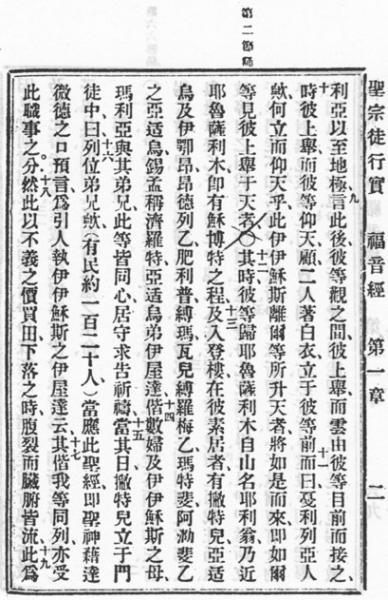 聖宗徒行實 福音經 第一章 二
第二節
利亞以至地極九言此後彼等觀之間彼上舉而雲由彼等目前而接之
十時彼上舉而彼等仰天顧二人著白衣立于彼等前而曰十一憂利列亞人
歟何立而仰天乎此伊伊穌斯離爾等所升天者將如是而來即如爾
等見彼上舉于天者〇十二其時彼等歸耶魯薩利木自山名耶利翁乃近
耶魯薩利木即有穌博特之程十三及入登樓在彼素居者有撇特兒亞适
烏及伊鄂昂昂德列乙肥利普縛瑪瓦兒縛羅梅乙瑪特斐阿泐斐乙
之亞适烏錫孟稱濟羅特亞适烏弟伊屋達十四偕數婦及伊伊穌斯之母
瑪利亞與其弟兄此等皆同心居守求告祈禱十五當其日撇特兒立于門
徒中曰十六列位弟兄歟(有民約一百二十人)當應此聖經即聖神藉達
微德之口預言為引人執伊伊穌斯之伊屋達云十七其偕我等同列亦受
此職事之分十八然此以不義之價買田下落之時腹裂而臟腑皆流十九此為